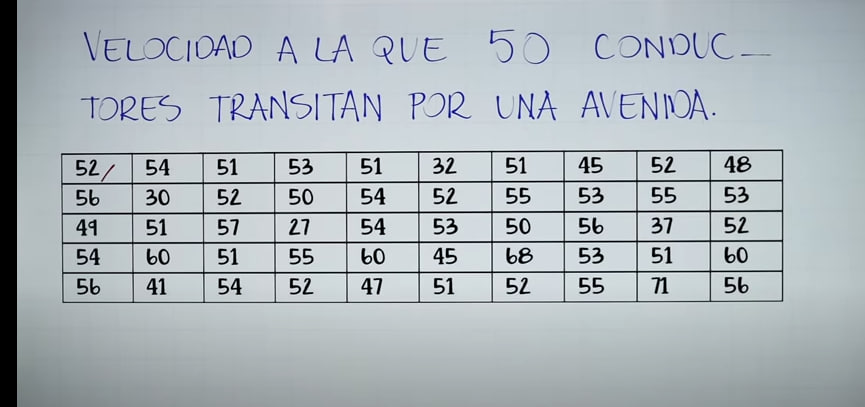 VELOCIDAD A LA QUE 50 CONDUC-
TORES TRANSITAN POR UNA AVENIDA.
52 54 51 53 51 32 51 45 52 48
56 30 52 50 54 52 55 53 55 53
49 51 57 27 54 53 50 56 37 52
54 60 51 55 60 45 68 53 51 60
56 41 54 52 47 51 52 55 71 56